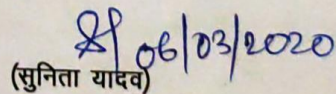 06/03/2020
(सुनिता यादव)